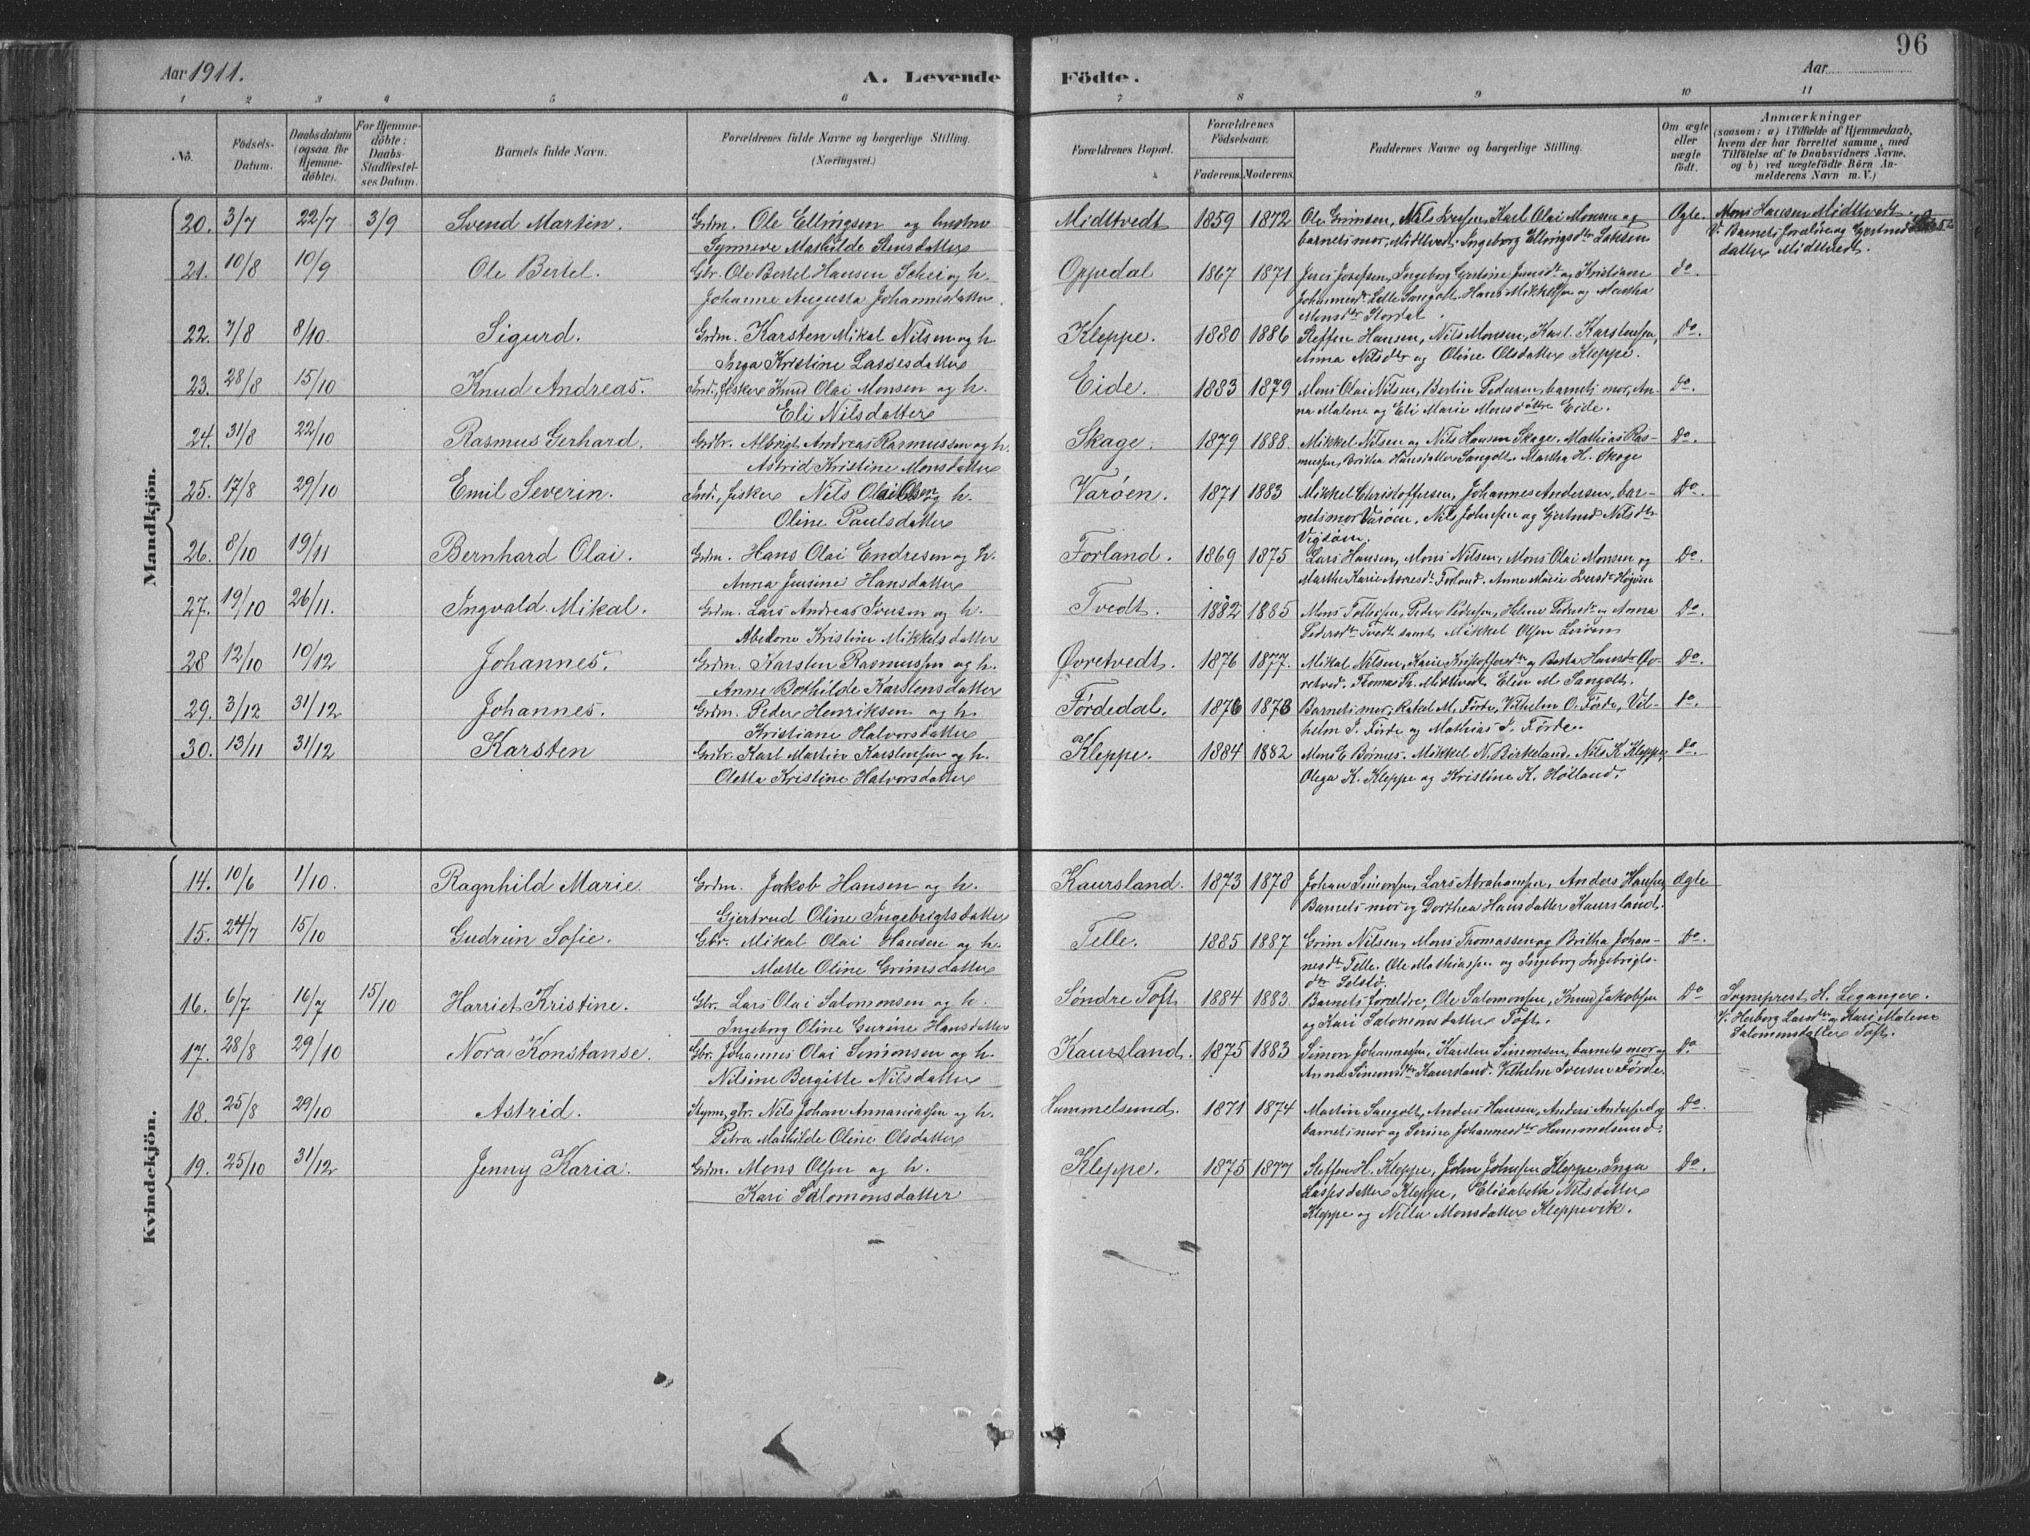 96
Aar 1911.
A. Levende Födte.
Aar
1 2 3 4 5 6 7 8 9 10 11
No.
Födsels-Datum.
Daabsdatum (ogsaa for Hjemmedöbte).
For Hjemmedöbte: Daabs-Stadfæstelses Datum.
Barnets fulde Navn.
Forældrenes fulde Navne og borgerlige Stilling. (Næringsvei.)
Forældrenes Bopæl.
Forældrenes Födselsaar.
Faderens. Moderens.
Faddernes Navne og borgerlige Stilling.
Om ægte eller uægte födt.
Anmærkninger (saasom: a) i Tilfælde af Hjemmedaab, hvem der har forrettet samme, med Tilföielse af to Daabsvidners Navne, og b) ved uægtefödte Börn Anmelderens Navn m. V.)
Mandkjön.
20. 3/7 22/7 3/9 Svend Martin. Grdm. Ole Ellingsen og hustru Midttvedt 1859 1872 Ole Grimsen, Nils Iversen, Karl Olai Monsen og Ægte. Mons Hansen Midttvedt.
Synneve Mathilde Jensdatter barnets mor, Midttvedt, Ingeborg Ellingsdtr V. Barnets forældre og Gjertrud
datter Midttvedt.
21. 10/8 10/9 Ole Bertel. Gbr. Ole Bertel Hansen Schei og h. Oppedal 1867 1871 Jens Josefsen, Ingeborg Gurine Jensdtr og Kristiane do.
Johanne Augusta Johannesdatter. Johannesdtr Lille Sangolt. Hans Mikkelsen og Martha
Monsdtr Stordal.
22. 7/8 8/10. Sigurd. Grdm. Karsten Mikal Nilsen og h. Kleppe. 1880 1886 Steffen Hansen, Nils Monsen, Karl Karstensen, Do.
Inga Kristine Lassesdatter Anna Nilsdtr og Oline Olsdatter Kleppe.
23. 28/8 15/10 Knud Andreas. Ind., fisker Knud Olai Monsen og h. Eide. 1883 1879 Mons Olai Nilsen, Bertin Pedersen, barnets mor, An- Do.
Eli Nilsdatter na Malene og Eli Marie Monsdøttre Eide.
24. 31/8 22/10 Rasmus Gerhard. Grdbr. Albrigt Andreas Rasmussen og h. Skage. 1879 1888. Mikkel Nilsen og Nils Hansen Skage. Mathias Ras- Do
Astrid Kristine Monsdatter mussen, Britha Hansdatter Sangolt. Martha H. Skage
25. 17/8 29/10 Emil Severin. Ind., fisker Nils Olai Olsen og h. Varöen. 1871 1883 Mikkel Christoffersen, Johannes Andersen, bar- Do.
Oline Paulsdatter nets mor Varöen, Nils Johnsen og Gjertrud Nilsdtr
Vigsöen.
26. 8/10 19/11 Bernhard Olai. Grdm. Hans Olai Endresen og h. Forland. 1869 1875 Lars Hansen, Mons Nilsen, Mons Olai Monsen og Do.
Anna Jensine Hansdatter Marthe Karie Forland. Anne Marie
27. 19/10 26/11. Ingvald Mikal. Grdm. Lars Andreas Iversen og h. Tvedt. 1882 1885 Mons Tollefsen, Peder Pedersen, Helene Pedersdtr og Anna Do.
Abelone Kristine Mikkelsdatter Pedersdtr Tvedt samt Mikkel Olsen
28 12/10 10/12 Johannes. Grdm. Karsten Rasmussen og h. Øvretvedt. 1876 1877. Mikal Nilsen, Karie Kristoffersdtr og Berta Hansdtr Öv- Do.
Anne Bothilde Karstensdatter retved. Thomas Th. Midttvedt, Elen M. Sangolt.
29. 3/12 31/12 Johannes. Grdm. Peder Henriksen og h. Førdedal. 1876 1873 Barnets mor, Rakel M. Førde, Vilhelm O. Førde, Vil- do.
Kristiane Halvorsdatter helm J. Førde og Mathias J. Førde.
30. 13/11 31/12 Karsten Grdbr. Karl Martin Karstensen og h. Kleppe. 1884 1882 Mons E. Børnes, Mikkel N. Birkeland, Nils K. Kleppe, do.
Oletta Kristine Halvorsdatter Olga K. Kleppe og Kristine K. Hølland.
Kvindekjön.
14. 10/6 1/10. Ragnhild Marie Grdm. Jakob Hansen og h. Kaursland. 1873 1878 Johan Simonsen, Lars Abrahamsen, Anders Hansen, Ægte
Gjertrud Oline Ingebrigtsdatter Barnets mor og Dorthea Hansdatter Kaursland.
15. 24/7 15/10 Gudrun Sofie. Gbr. Mikal Olai Hansen og h. Telle. 1885 1887 Grim Nilsen, Mons Thomassen og Britha Johan- Do.
Mette Oline Grimsdatter nesdtr Telle. Ole Mathiassen og Ingeborg Ingebrigts-
dtr Selstø.
16. 6/7 16/7 15/10 Harriet Kristine. Gbr. Lars Olai Salomonsen og h. Søndre Toft 1884 1883. Barnets forældre, Ole Salomonsen, Knud Jakobsen Do Sogneprest H. Leganger.
Ingeborg Oline Gurine Hansdatter og Kari Salomonsdatter Toft. V. Herborg Larsdtr og Kari Malene
Salomonsdatter Toft.
17. 28/8 29/10 Nora Konstanse. Gbr. Johannes Olai Simonsen og h. Kaursland. 1875 1883 Simon Johannessen, Karsten Simonsen, barnets mor og do.
Nilsine Bergitte Nilsdatter Anna Simonsdtr Kaursland. Vilhelm Iversen Førde.
18. 25/8 29/10 Astrid. Styrm., gbr. Nils Johan Annaniassen og h. Hummelsund. 1871 1874 Martin Sangolt, Anders Hansen, Anders Andersen og Do.
Petra Mathilde Oline Olsdatter barnets mor og Serine Johannesdtr Hummelsund.
19. 25/10 31/12 Jenny Karia. Grdm. Mons Olsen og h. Kleppe. 1875 1877 Steffen H. Kleppe, John Johnsen Kleppe, Inga Do.
Kari Salomonsdatter Lassesdatter Kleppe, Elisabetha Nilsdatter
Kleppe og Nella Monsdatter Kleppevik.